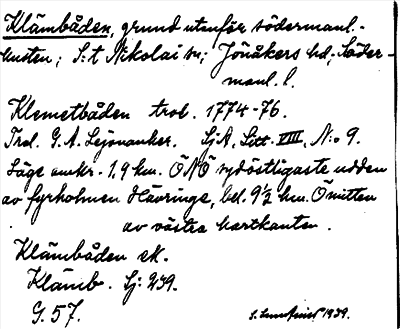 Klämbåden, grund utanför södermanl.-
kusten; S:t Nikolai sn; Jönåkers hd; Söder-
manl. l.
Klemetbåden trol. 1774-76.
Trol. G. A. Lejonanker. SjA, Litt. VIII, N:o 9.
Läge omkr. 1,9 km. ÖNÖ sydöstligaste udden
av fyrholmen Hävringe, bel. 9½ km. Ö mitten
av västra kartkanten.
Klämbåden ek.
Klämb. Sj: 239.
G. 57.
1939.